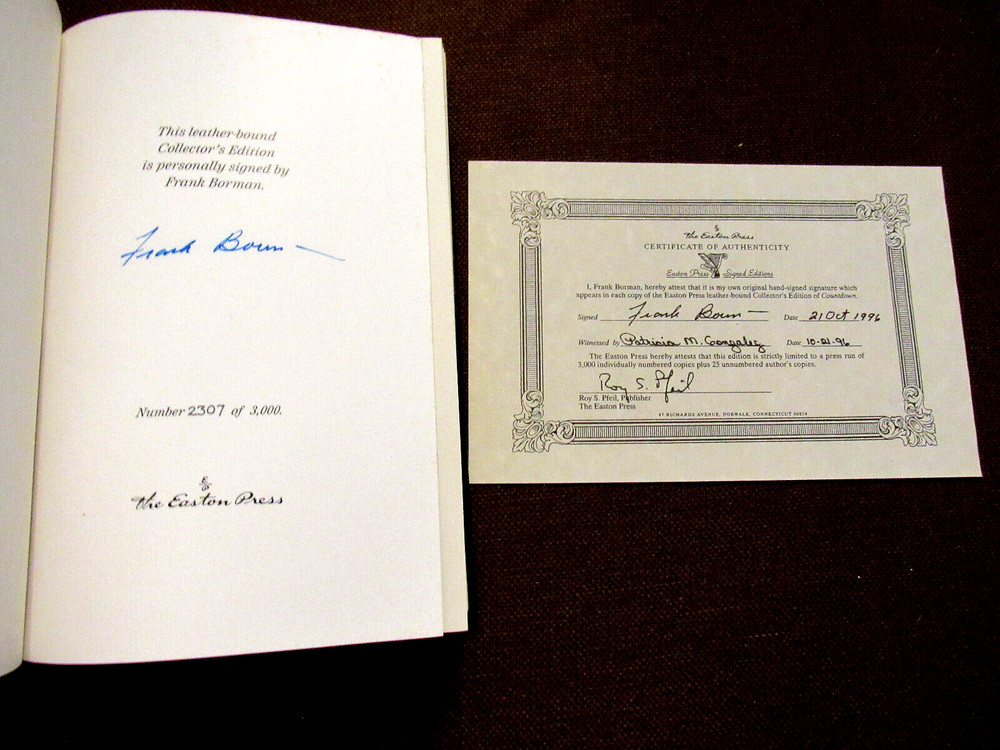 This leather-bound
Collector's Edition
is personally signed by
Frank Borman.
Frank Borman
Number 2307 of 3,000.
The Easton Press
The Easton Press
CERTIFICATE OF AUTHENTICITY
Easton Press Signed Editions
I, Frank Borman, hereby attest that it is my own original hand-signed signature which
appears in each copy of the Easton Press leather-bound Collector's Edition of Countdown.
Signed Frank Borman Date 21 Oct 1996
Witnessed by Patricia M. Gonzalez Date 10-21-96
The Easton Press hereby attests that this edition is strictly limited to a press run of
3,000 individually numbered copies plus 25 unnumbered author's copies.
Roy S. Pfeil
Roy S. Pfeil, Publisher
The Easton Press
47 RICHARDS AVENUE, NORWALK, CONNECTICUT 06854